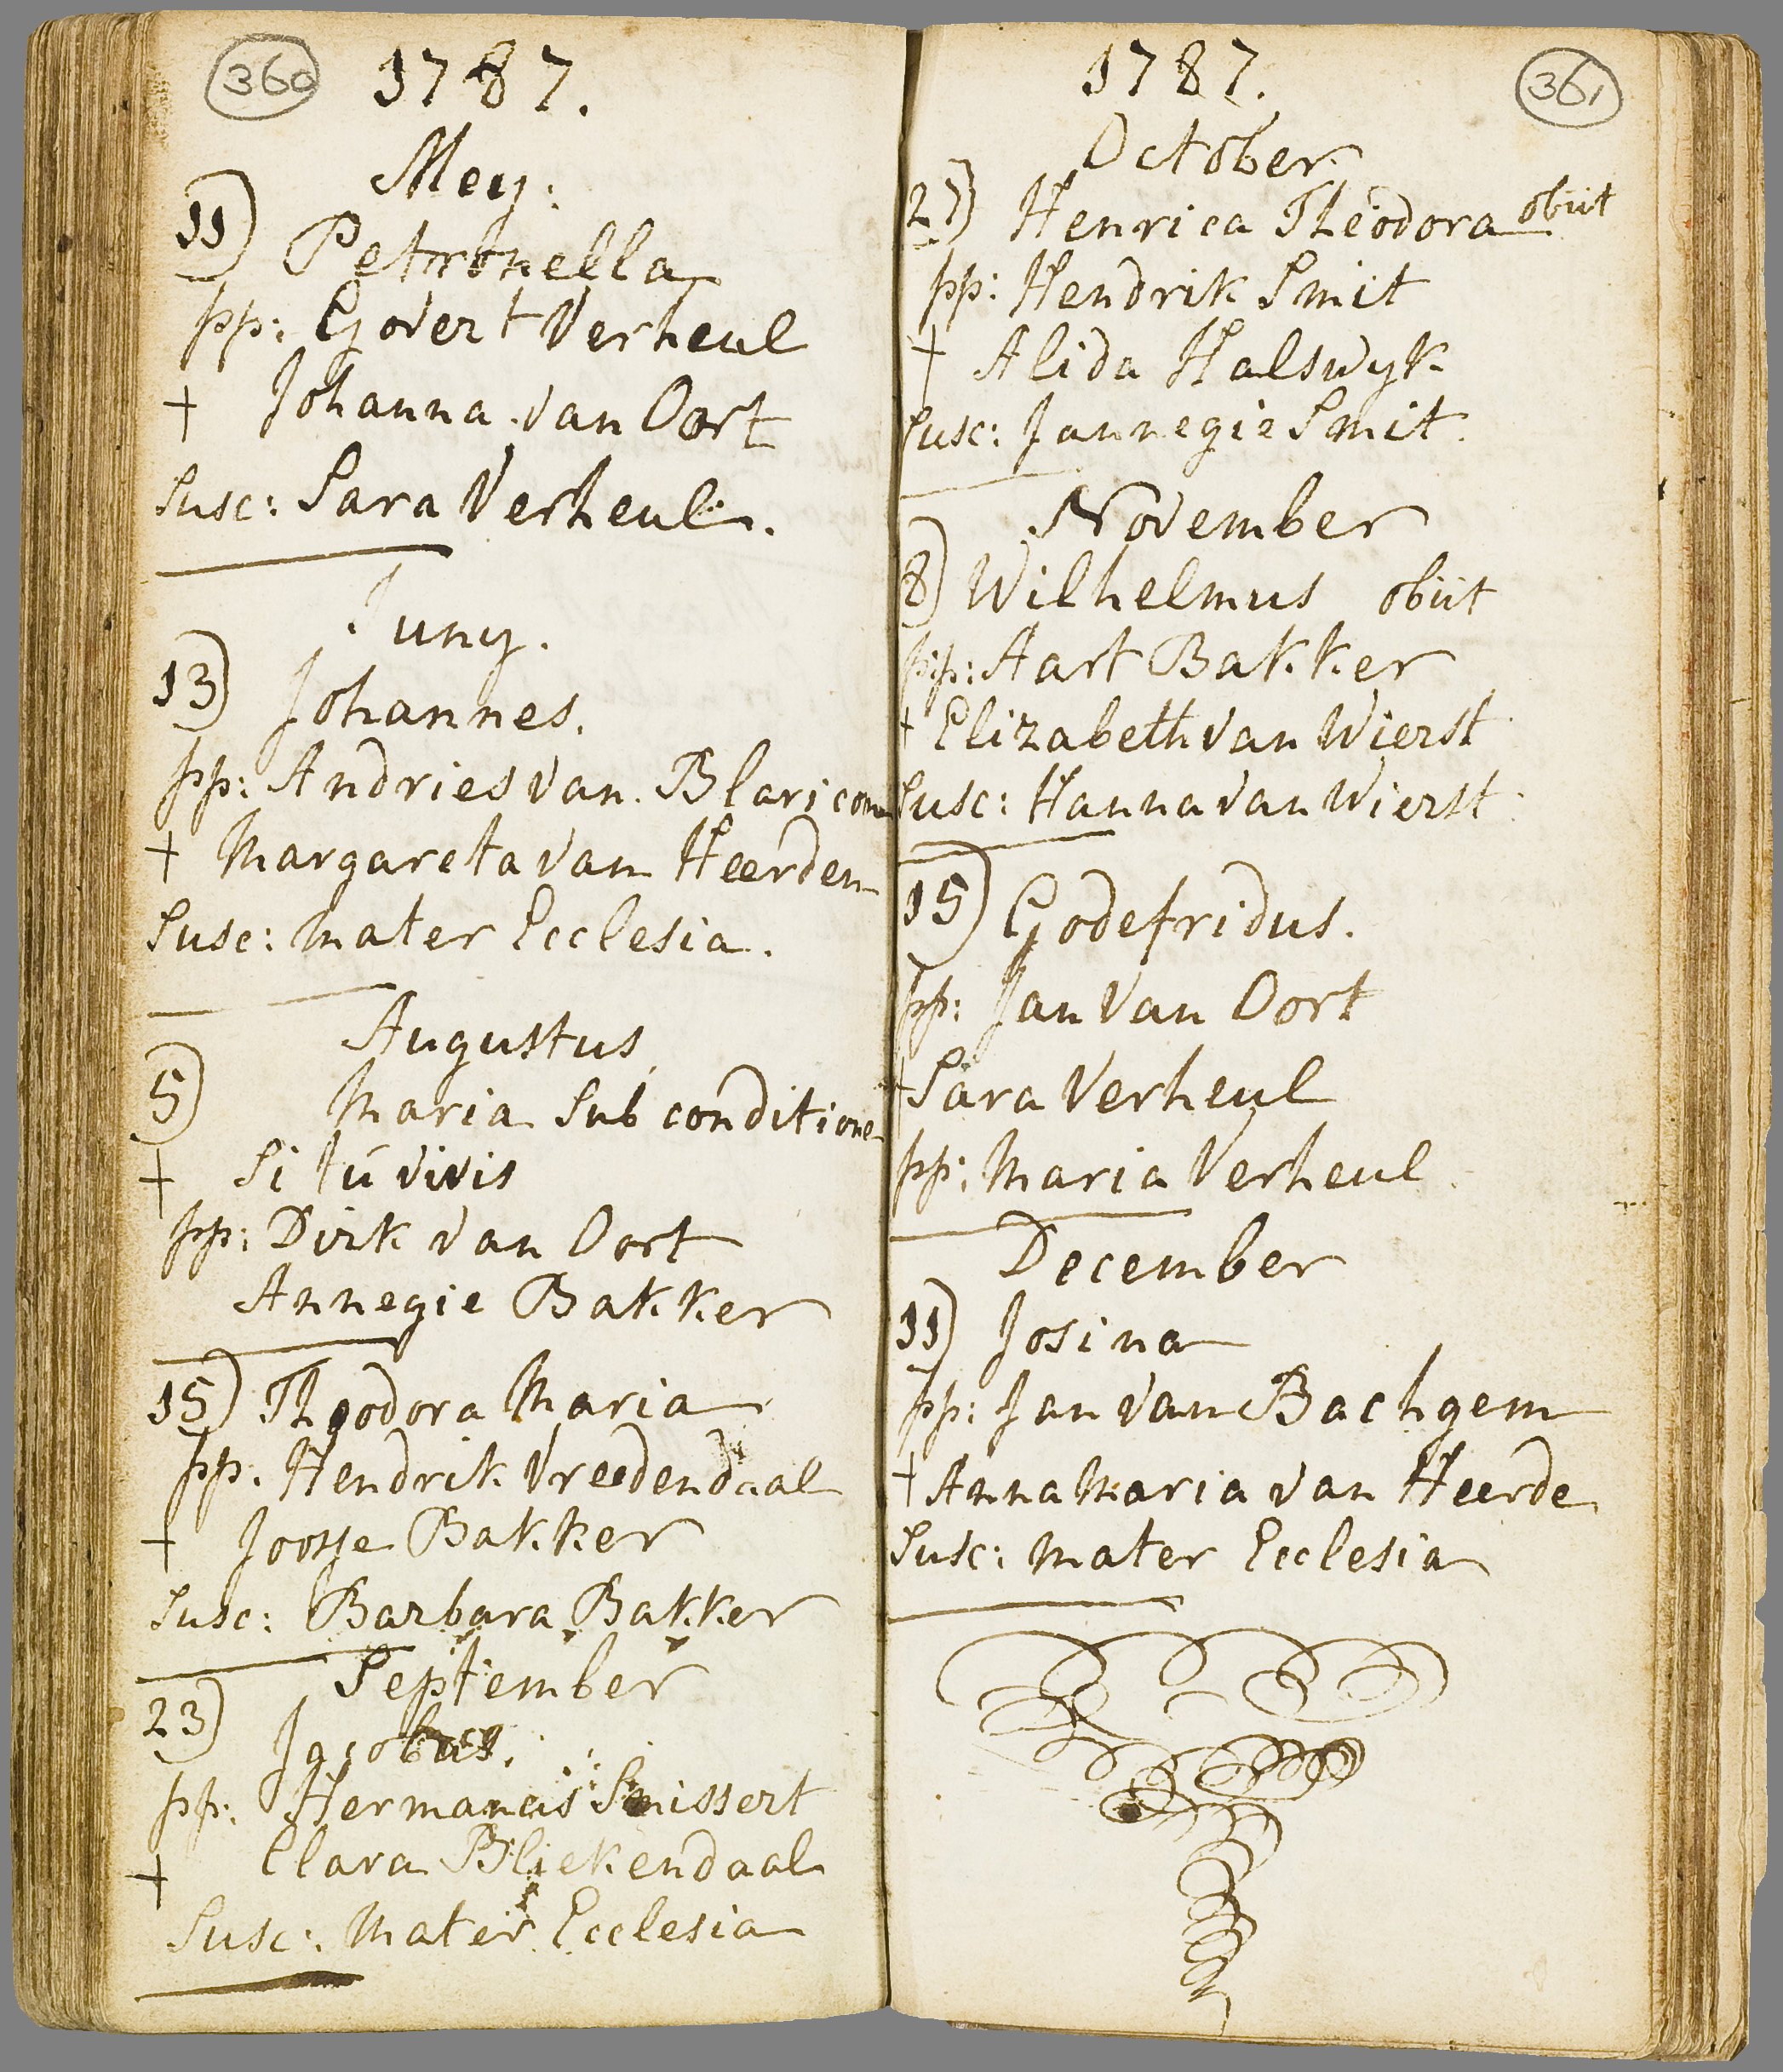 360
1787.
Mey:
11) Petronella
pp: Govert Verheul
† Johanna van Oort
Susc: Sara Verheul.
Juny.
13) Johannes.
pp: Andries van Blaricom
† Margareta van Heerden
Susc: Mater Ecclesia.
Augustus
5) Maria Sub conditione
† Si tú vivis
pp: Dirk van Oort
Annegie Bakker
15) Theodora Maria
pp. Hendrik Vreedendaal
† Joosje Bakker
Susc: Barbara Bakker
September
23) Jacobus.
pp: Hermanus Smissert
† Clara Bliekendaal
Susc: Mater Ecclesia
361
1787.
October.
27) Henrica Theodora obiit
pp: Hendrik Smit
† Alida Halswyk
Susc: Jannegie Smit.
November
8) Wilhelmus obiit
pp: Aart Bakker
† Elizabeth van Wierst
Susc: Hanna van Wierst
15) Godefridus.
pp: Jan van Oort
† Sara Verheul
pp: Maria Verheul
December
11) Josina
pp: Jan van Bachgem
† Anna Maria van Heerde
Susc: Mater Ecclesia